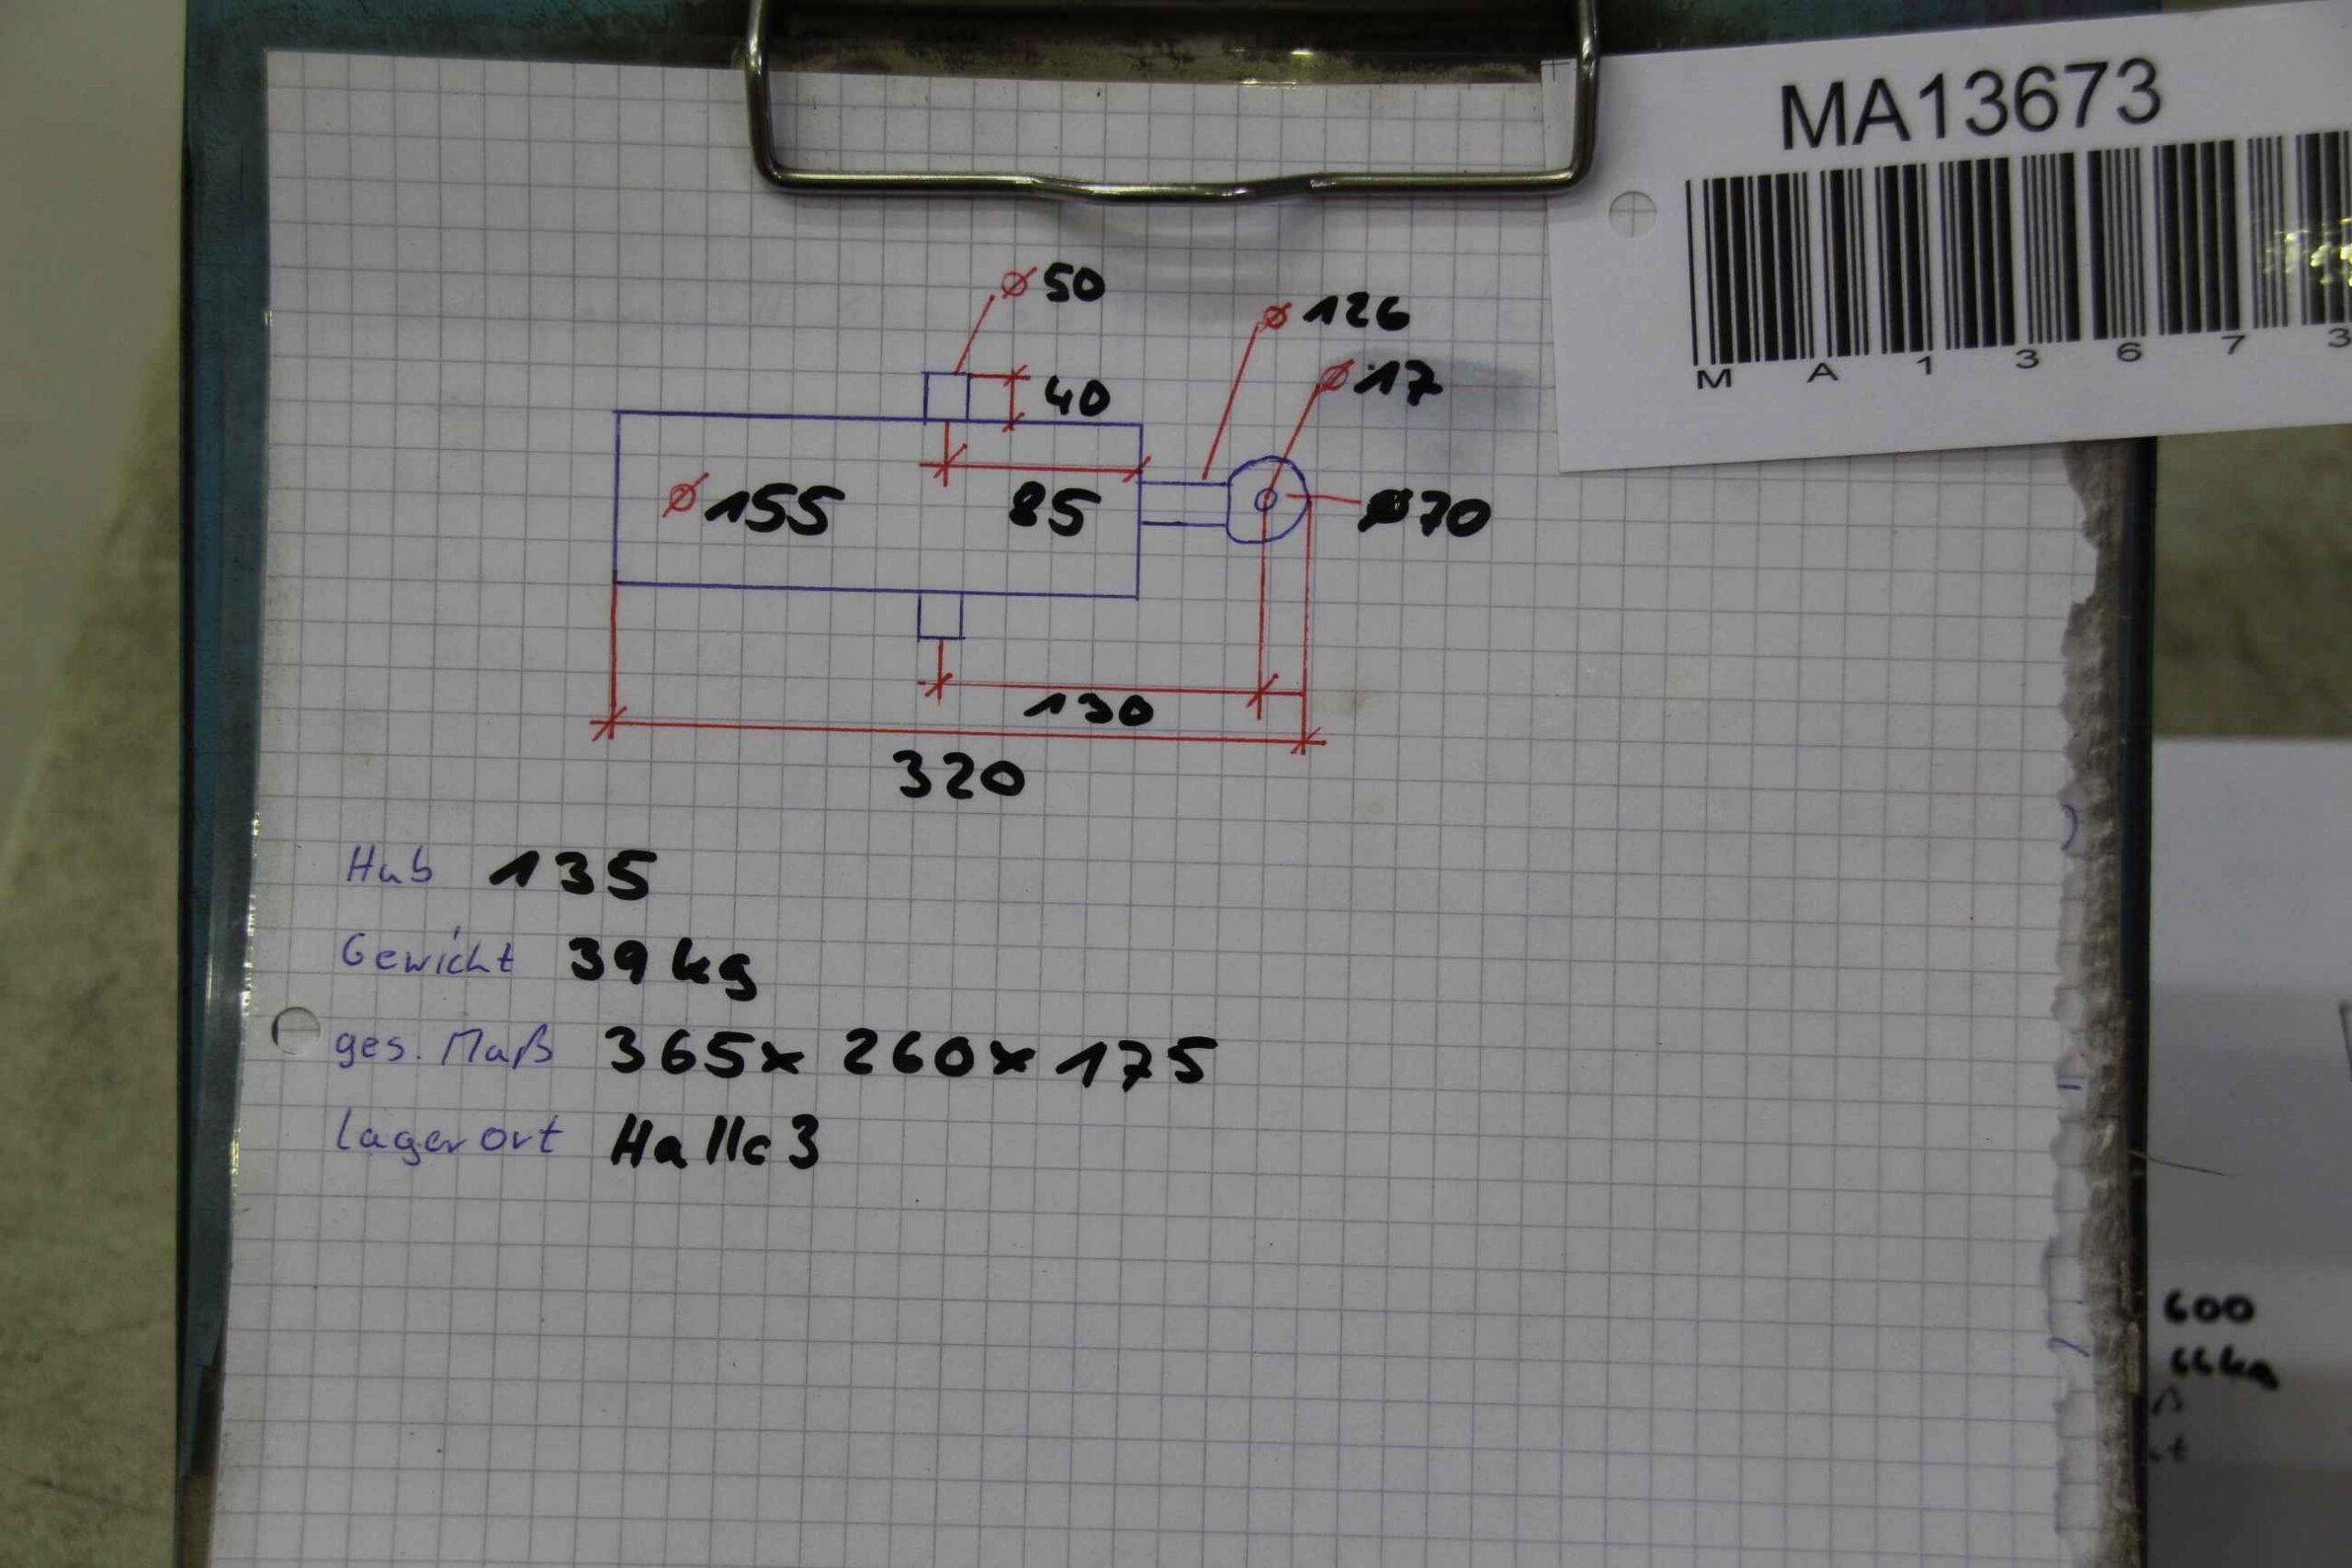 MA13673
M A 1 3 6 7 3
ø 50
ø 126
40
ø 17
ø 155
85
ø70
130
320
Hub 135
Gewicht 39 kg
ges. Maß 365 x 260 x 175
Lagerort Halle 3
600
66kg